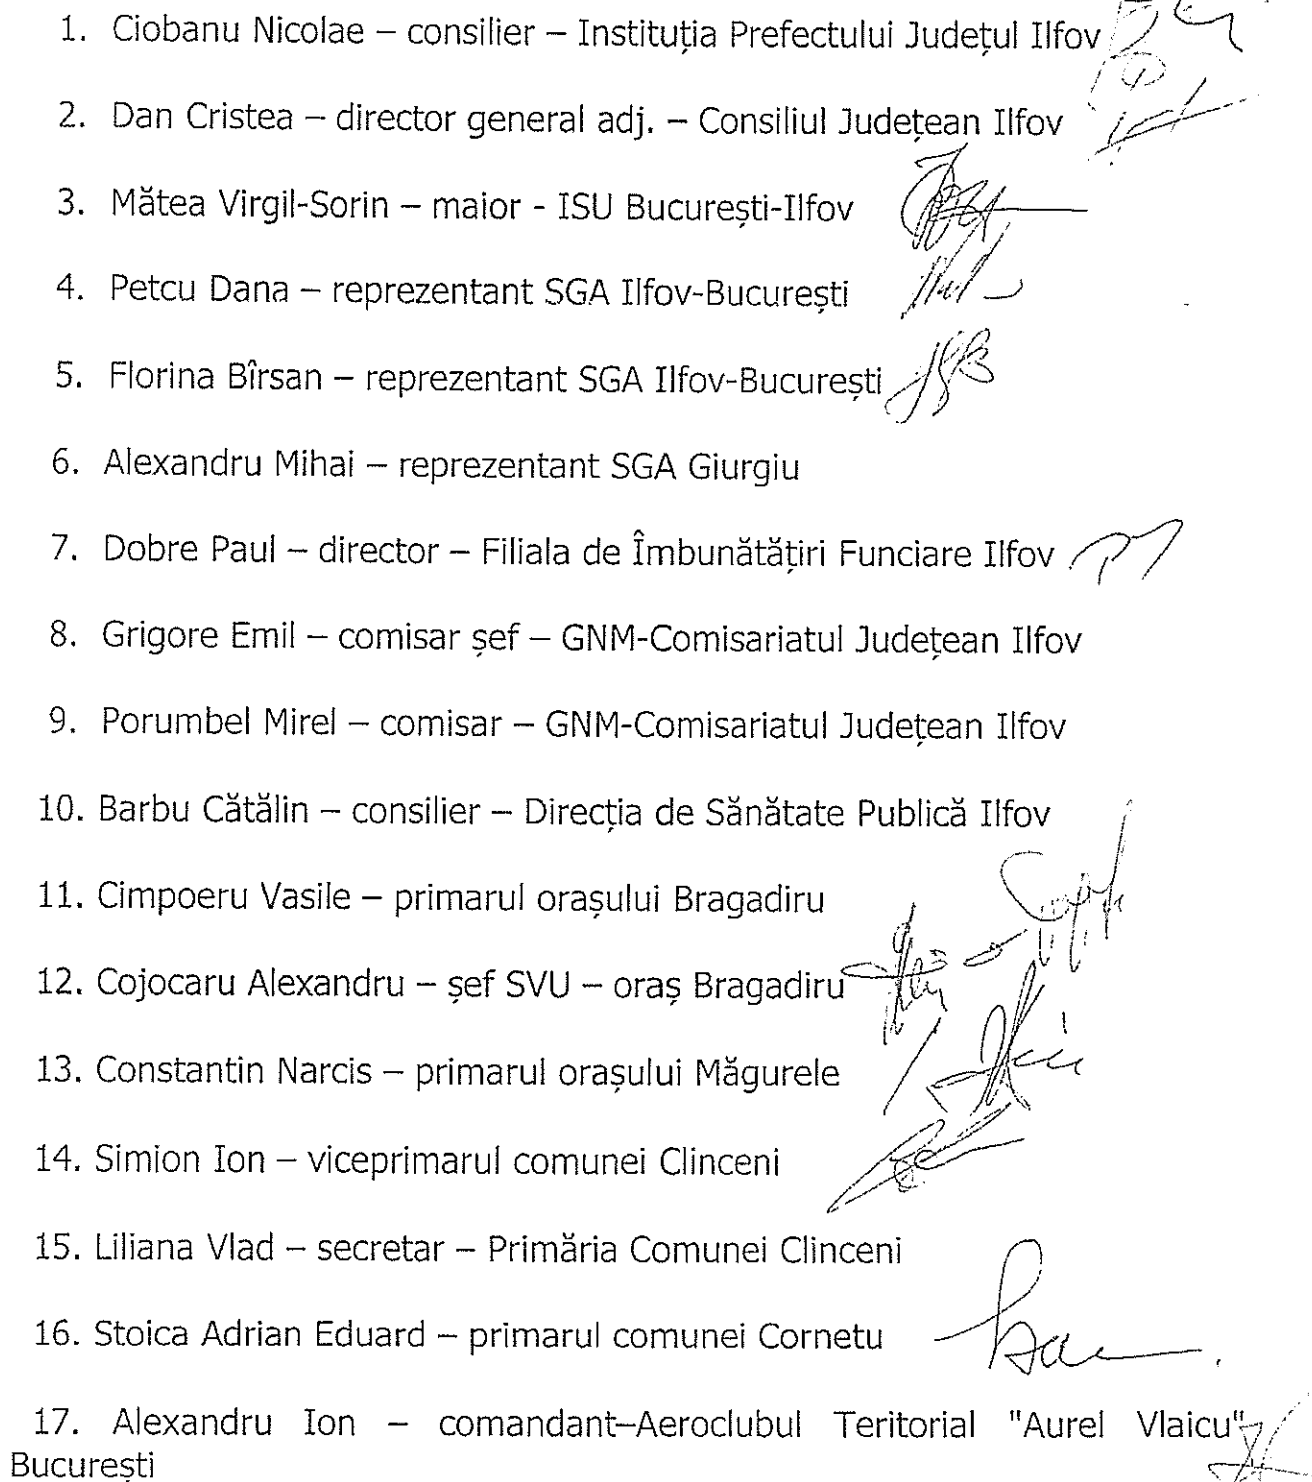 1. Ciobanu Nicolae – consilier – Instituția Prefectului Județul Ilfov
2. Dan Cristea – director general adj. – Consiliul Județean Ilfov
3. Mătea Virgil-Sorin – maior - ISU București-Ilfov
4. Petcu Dana – reprezentant SGA Ilfov-București
5. Florina Bîrsan – reprezentant SGA Ilfov-București
6. Alexandru Mihai – reprezentant SGA Giurgiu
7. Dobre Paul – director – Filiala de Îmbunătățiri Funciare Ilfov
8. Grigore Emil – comisar șef – GNM-Comisariatul Județean Ilfov
9. Porumbel Mirel – comisar – GNM-Comisariatul Județean Ilfov
10. Barbu Cătălin – consilier – Direcția de Sănătate Publică Ilfov
11. Cimpoeru Vasile – primarul orașului Bragadiru
12. Cojocaru Alexandru – șef SVU – oraș Bragadiru
13. Constantin Narcis – primarul orașului Măgurele
14. Simion Ion – viceprimarul comunei Clinceni
15. Liliana Vlad – secretar – Primăria Comunei Clinceni
16. Stoica Adrian Eduard – primarul comunei Cornetu
17. Alexandru Ion – comandant–Aeroclubul Teritorial "Aurel Vlaicu"
București